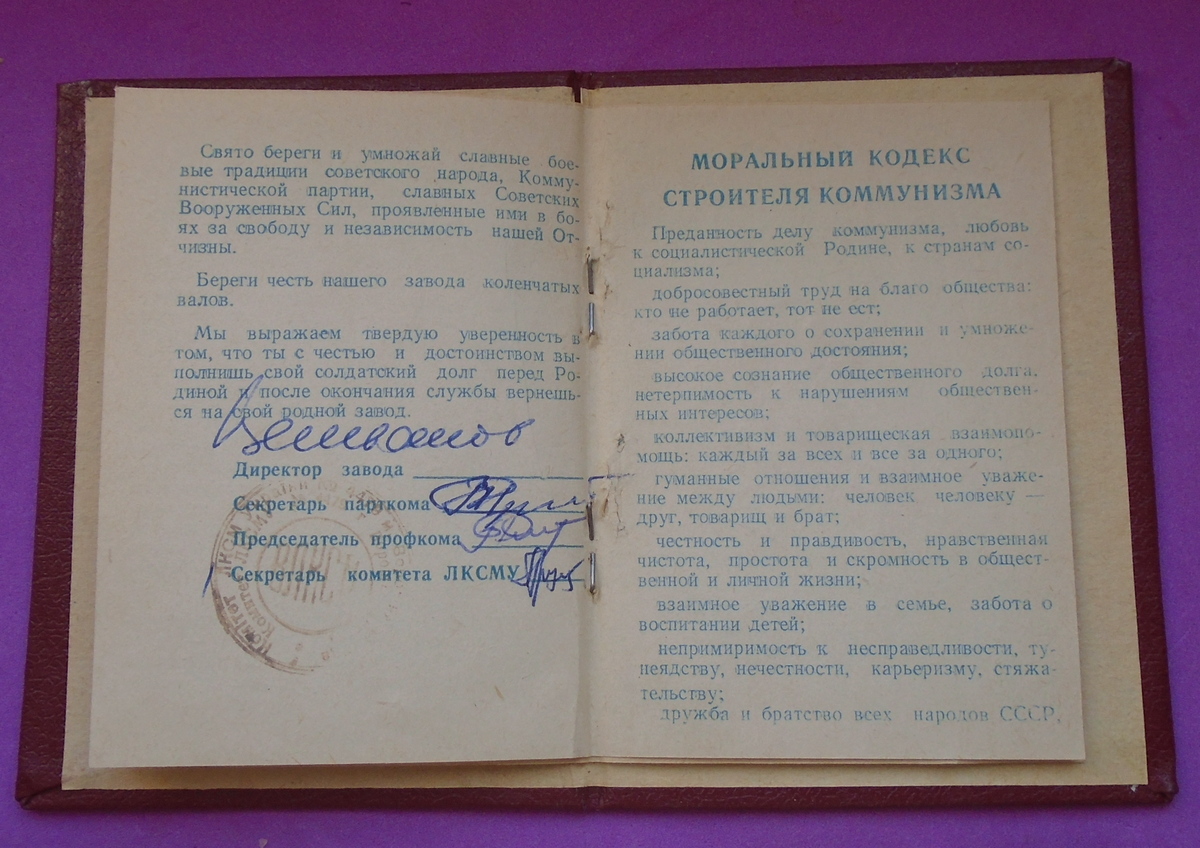 Свято береги и умножай славные бое-
вые традиции советского народа, Комму-
нистической партии, славных Советских
Вооруженных Сил, проявленные ими в бо-
ях за свободу и независимость нашей От-
чизны.
Береги честь нашего завода коленчатых
валов.
Мы выражаем твердую уверенность в
том, что ты с честью и достоинством вы-
полнишь свой солдатский долг перед Ро-
диной и после окончания службы вернешь-
ся на свой родной завод.
Директор завода
Секретарь парткома
Председатель профкома
Секретарь комитета ЛКСМУ
МОРАЛЬНЫЙ КОДЕКС
СТРОИТЕЛЯ КОММУНИЗМА
Преданность делу коммунизма, любовь
к социалистической Родине, к странам со-
циализма;
добросовестный труд на благо общества:
кто не работает, тот не ест;
забота каждого о сохранении и умноже-
нии общественного достояния;
высокое сознание общественного долга,
нетерпимость к нарушениям обществен-
ных интересов;
коллективизм и товарищеская взаимопо-
мощь: каждый за всех и все за одного;
гуманные отношения и взаимное уваже-
ние между людьми: человек человеку —
друг, товарищ и брат;
честность и правдивость, нравственная
чистота, простота и скромность в общест-
венной и личной жизни;
взаимное уважение в семье, забота о
воспитании детей;
непримиримость к несправедливости, ту-
неядству, нечестности, карьеризму, стяжа-
тельству;
дружба и братство всех народов СССР,